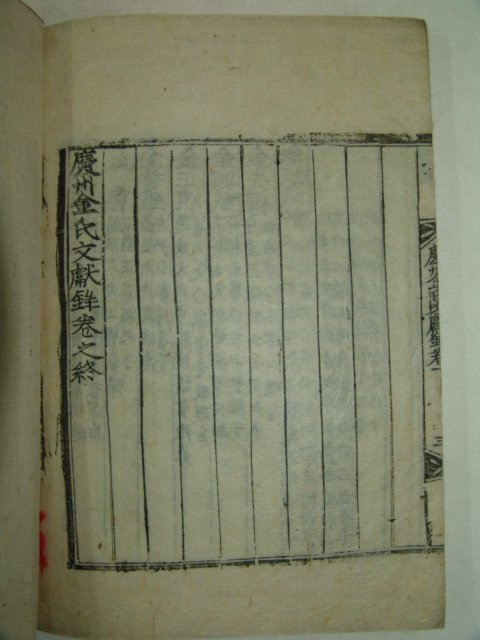 慶州金氏文獻錄卷之終
慶州金氏文獻錄卷